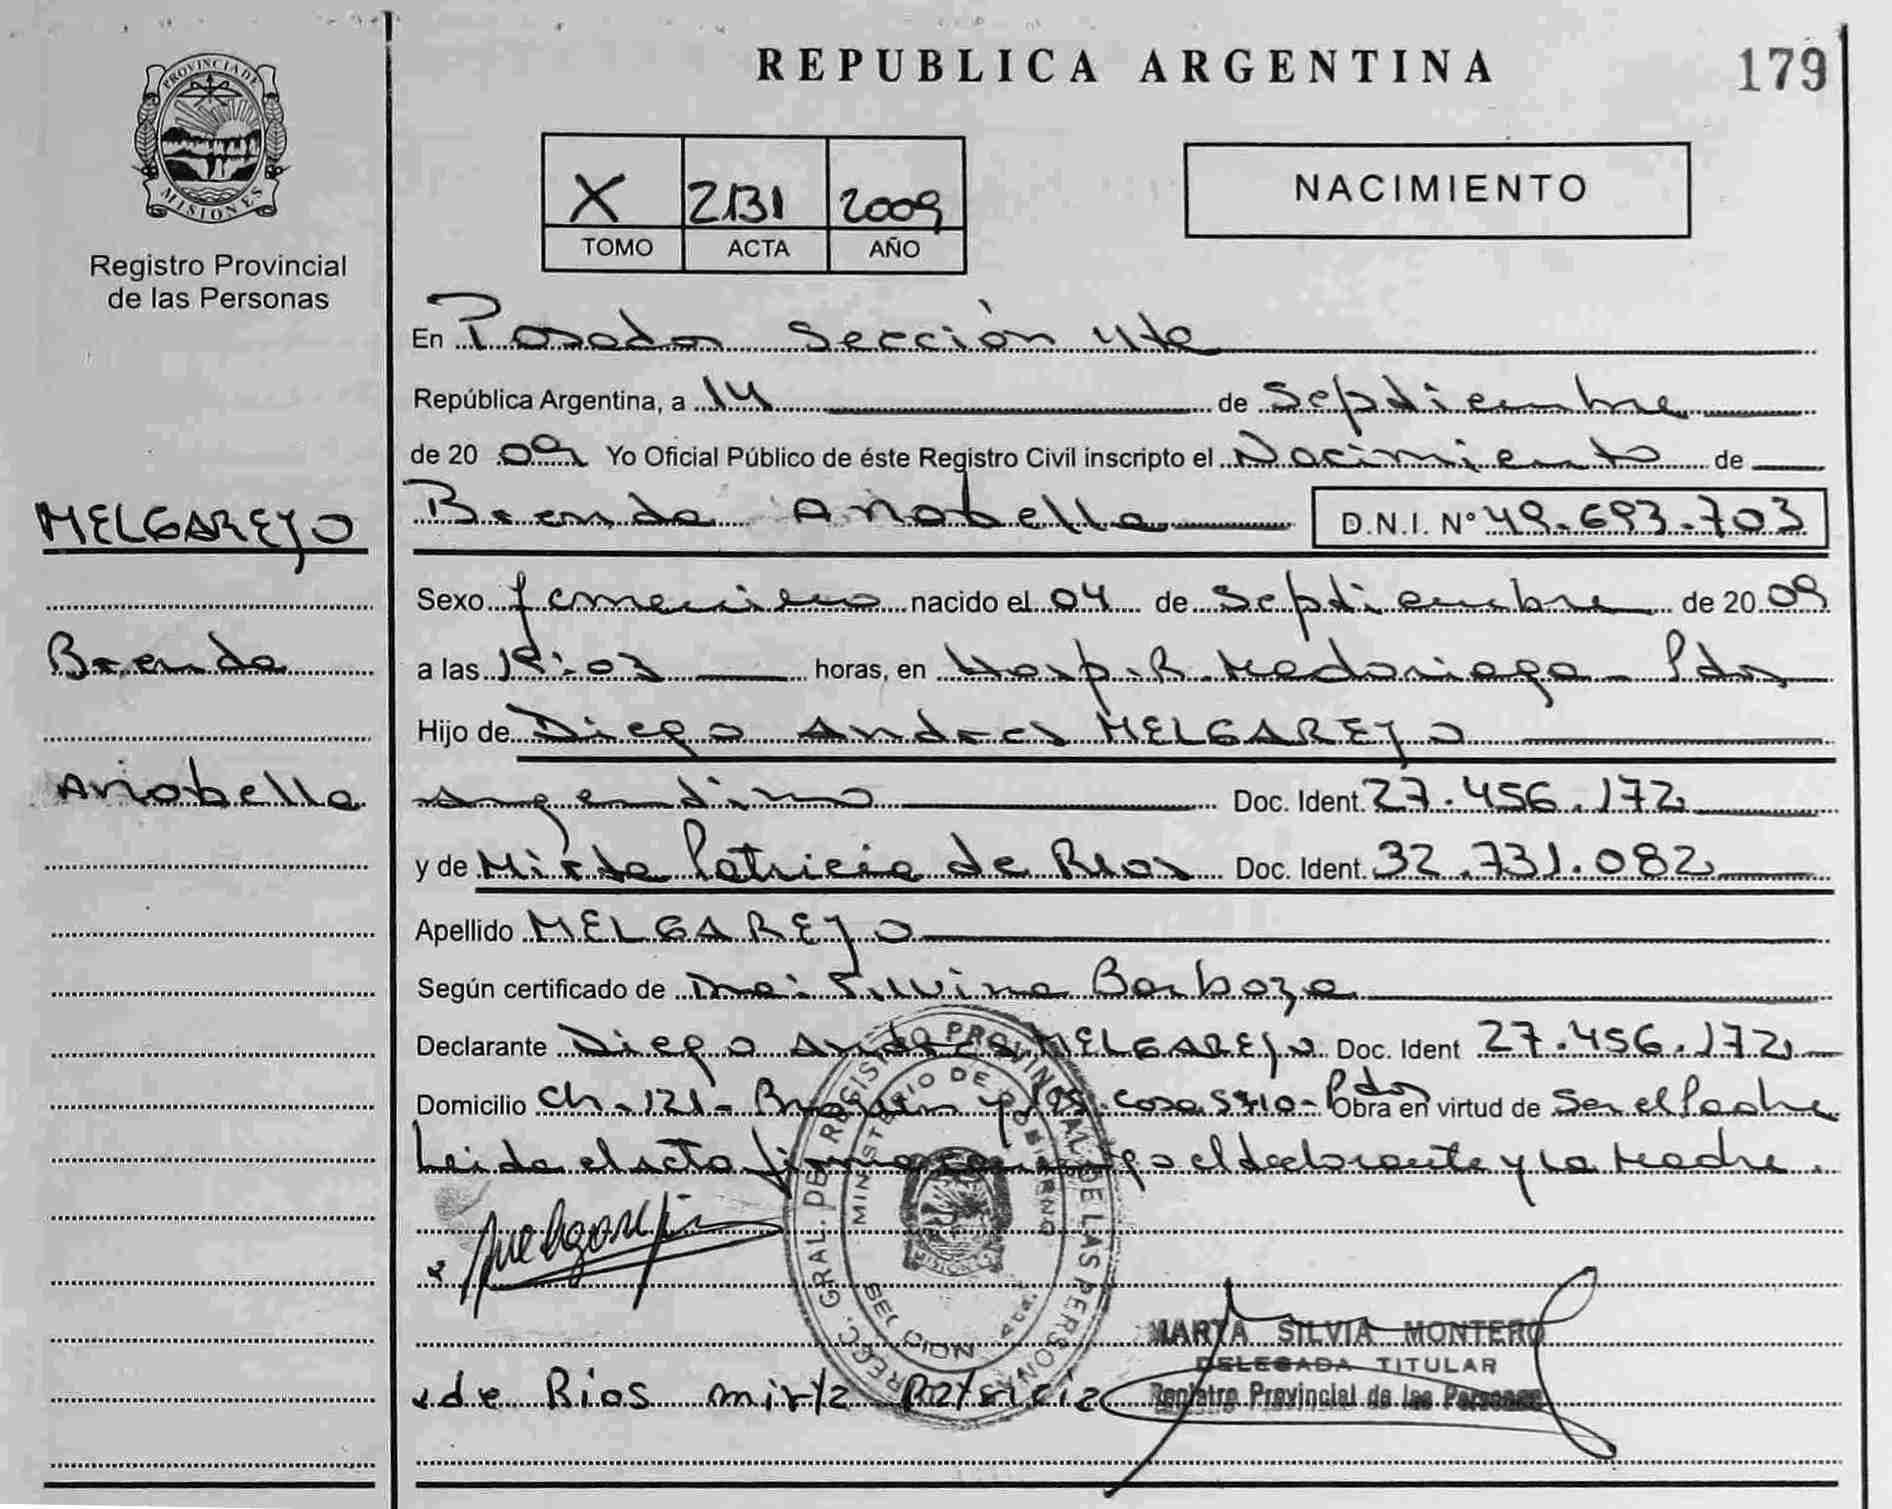 REPUBLICA ARGENTINA
179
PROVINCIA DE
MISIONES
Registro Provincial
de las Personas
X 2131 2009
TOMO ACTA AÑO
NACIMIENTO
En Posadas Sección 4ta
República Argentina, a 14 de Septiembre
de 20 09 Yo Oficial Público de éste Registro Civil inscripto el Nacimiento de
Brenda Anabella D.N.I. Nº 49.693.703
MELGAREJO
Sexo femenino nacido el 04 de Septiembre de 20 09
Brenda
a las 19:03 horas, en Hosp. R. Madariaga - Pdas
Hijo de Diego Andres MELGAREJO
Anabella
argentino Doc. Ident. 27.456.172
y de Mirta Patricia de Rios Doc. Ident. 32.731.082
Apellido MELGAREJO
Según certificado de Dra. Silvina Barboza
Declarante Diego Andres MELGAREJO Doc. Ident 27.456.172
Domicilio Ch. 121 - casa Pdas Obra en virtud de Ser el Padre
Leida el acta firma conmigo el declarante y la Madre.
DIREC. GRAL. DEL REGISTRO PROVINCIAL DE LAS PERSONAS
MINISTERIO DE GOBIERNO
MISIONES
Melgarejo
MARTA SILVIA MONTERO
DELEGADA TITULAR
Registro Provincial de las Personas
de Rios mirta Patricia